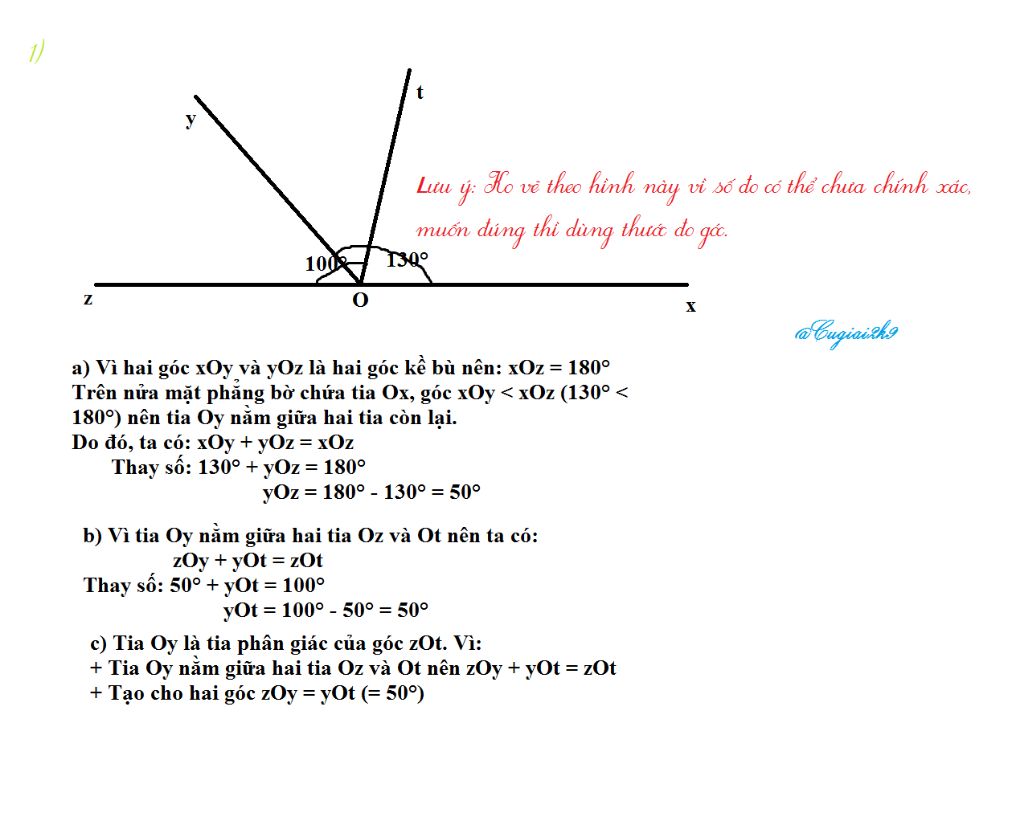 1)
t
y
Lưu ý: Ko vẽ theo hình này vì số đo có thể chưa chính xác,
muốn đúng thì dùng thước đo góc.
100°
130°
z
O
x
@Cugiai2k9
a) Vì hai góc xOy và yOz là hai góc kề bù nên: xOz = 180°
Trên nửa mặt phẳng bờ chứa tia Ox, góc xOy < xOz (130° <
180°) nên tia Oy nằm giữa hai tia còn lại.
Do đó, ta có: xOy + yOz = xOz
Thay số: 130° + yOz = 180°
yOz = 180° - 130° = 50°
b) Vì tia Oy nằm giữa hai tia Oz và Ot nên ta có:
zOy + yOt = zOt
Thay số: 50° + yOt = 100°
yOt = 100° - 50° = 50°
c) Tia Oy là tia phân giác của góc zOt. Vì:
+ Tia Oy nằm giữa hai tia Oz và Ot nên zOy + yOt = zOt
+ Tạo cho hai góc zOy = yOt (= 50°)